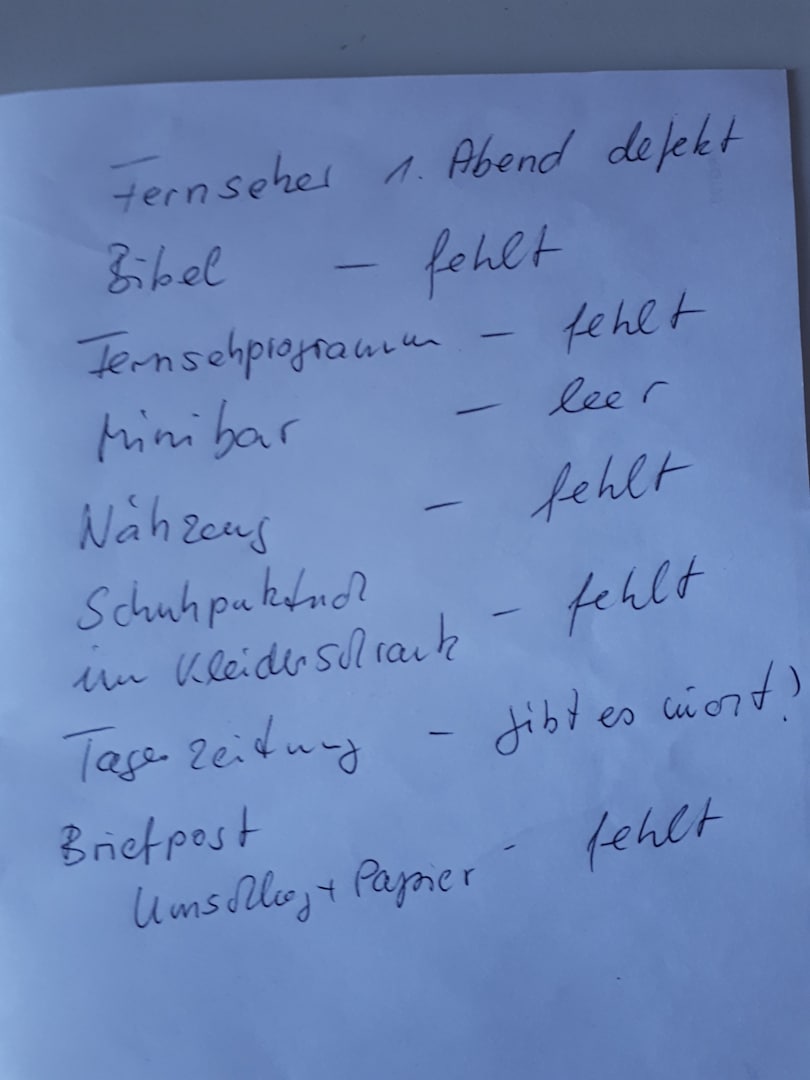 Fernseher 1. Abend defekt
Bibel — fehlt
Fernsehprogramm — fehlt
Minibar — leer
Nähzeug — fehlt
Schuhputztuch
im Kleiderschrank — fehlt
Tageszeitung — gibt es nicht!
Briefpost
Umschlag + Papier - fehlt